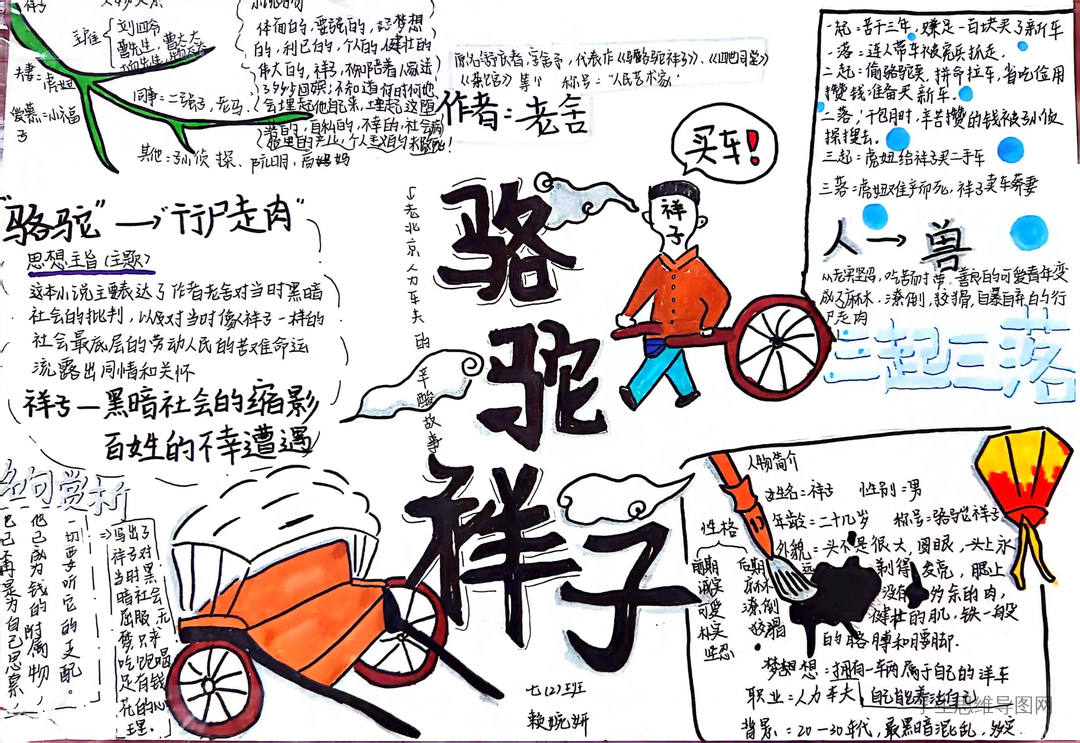 体面的，要强的，好梦想
的，利己的，个人的，健壮的
伟大的，祥子，不知陪着人家送
了多少回殡；不知道何时何地
会埋起他自己来，埋起这堕
落的，自私的，不幸的，社会病
胎里的产儿，个人主义的末路鬼！
主雇
刘四爷
曹先生，曹太太
夫妻：虎妞
同事：二强子，老马
爱慕：小福
子
其他：孙侦探、阮明、高妈妈
原名舒庆春，字舍予，代表作《骆驼祥子》、《四世同堂》
《茶馆》等 称号："人民艺术家"
作者：老舍
一起：苦干三年，赚足一百块买了新车
一落：连人带车被宪兵抓走.
二起：偷骆驼卖，拼命拉车，省吃俭用
攒钱准备买新车.
二落：干包月时，辛苦攒的钱被孙侦
探搜去.
三起：虎妞给祥子买二手车
三落：虎妞难产而死，祥子卖车葬妻
人→兽
从老实坚忍，吃苦耐劳，善良的可爱青年变
成了麻木，潦倒，狡猾，自暴自弃的行
尸走肉
三起三落
买车！
祥子
"骆驼"→"行尸走肉"
思想主旨（主题）
这本小说主要表达了作者老舍对当时黑暗
社会的批判，以及对当时像祥子一样的
社会最底层的劳动人民的苦难命运
流露出同情和关怀
祥子—黑暗社会的缩影
百姓的不幸遭遇
老北京人力车夫的
辛酸故事
骆驼祥子
名句赏析
一切要听它的支配。
他已成为钱的附属物，
已不再是为自己思索，
⇒写出了
祥子对
当时黑
暗社会
屈服，无
梦只求
吃饱喝
足有钱
花的心
理.
七（2）班
赖婉妍
人物简介
姓名：祥子 性别：男
年龄：二十几岁 称号：骆驼祥子
外貌：头不是很大，圆眼，
剃得发亮，腮上
没有多余的肉，
健壮的肌，铁一般
的胳膊和腰脚.
性格
前期
诚实
可爱
朴实
坚忍
后期
麻木
潦倒
狡猾
梦想：拥有一车两属于自己的洋车
职业：人力车夫 自己能养活自己
背景：20—30年代，最黑暗混乱，
学生思维导图网